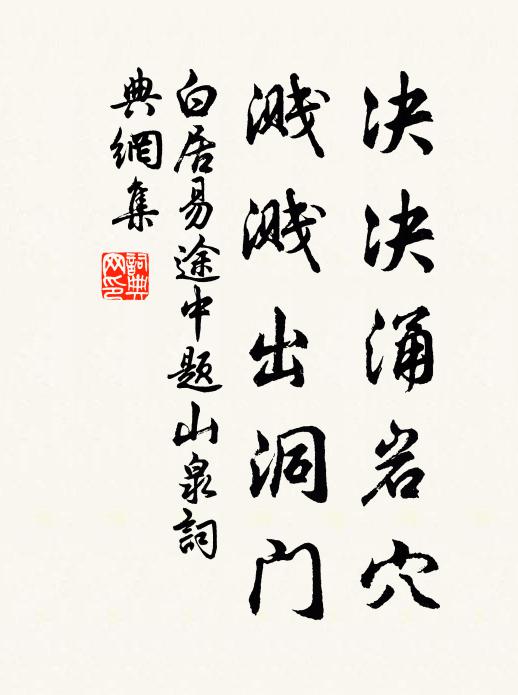 决决涌岩穴
溅溅出洞门
白居易途中题山泉詞
典網集
詞典网印